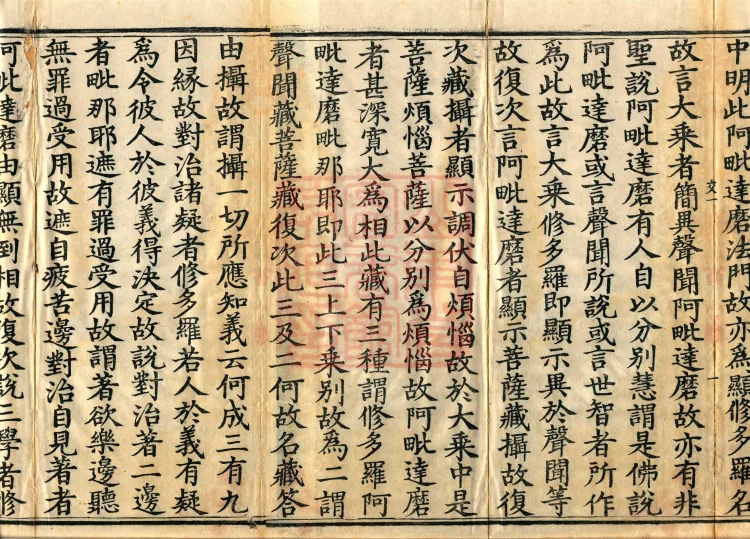 中明此阿毗達磨法門故亦為顯修多羅名
故言大乘者簡異聲聞阿毗達磨故亦有非
聖說阿毗達磨有人自以分別慧謂是佛說
阿毗達磨或言聲聞所說或言世智者所作
為此故言大乘修多羅即顯示異於聲聞等
故復次言阿毗達磨者顯示菩薩藏攝故復
次藏攝者顯示調伏自煩惱故於大乘中是
菩薩煩惱菩薩以分別為煩惱故阿毗達磨
者甚深寬大為相此藏有三種謂修多羅阿
毗達磨毗那耶即此三上下乘別故為二謂
聲聞藏菩薩藏復次此三及二何故名藏答
由攝故謂攝一切所應知義云何成三有九
因緣故對治諸疑者修多羅若人於義有疑
為令彼人於彼義得決定故說對治著二邊
者毗那耶遮有罪過受用故謂著欲樂邊聽
無罪過受用故遮自疲苦邊對治自見著者
阿毗達磨由顯無到相故復次說三學者修
交一